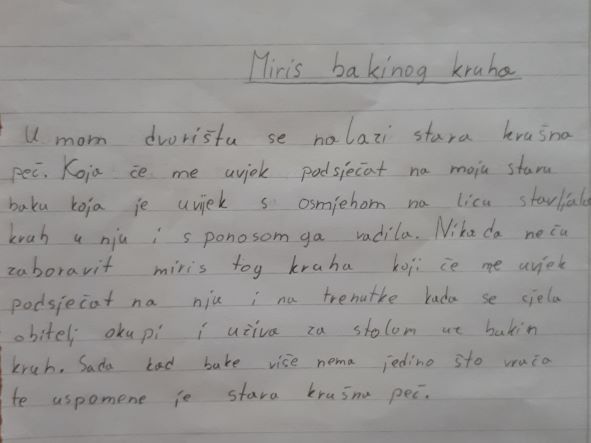 Miris bakinog kruha
U mom dvorištu se nalazi stara krušna
peč. Koja če me uvjek podsječat na moju staru
baku koja je uvijek s osmjehom na licu stavljala
kruh u nju i s ponosom ga vadila. Nikada neču
zaboravit miris tog kruha koji če me uvjek
podsječat na nju i na trenutke kada se cjela
obitelj okupi i uživa za stolom uz bakin
kruh. Sada kad bake više nema jedino što vrača
te uspomene je stara krušna peč.